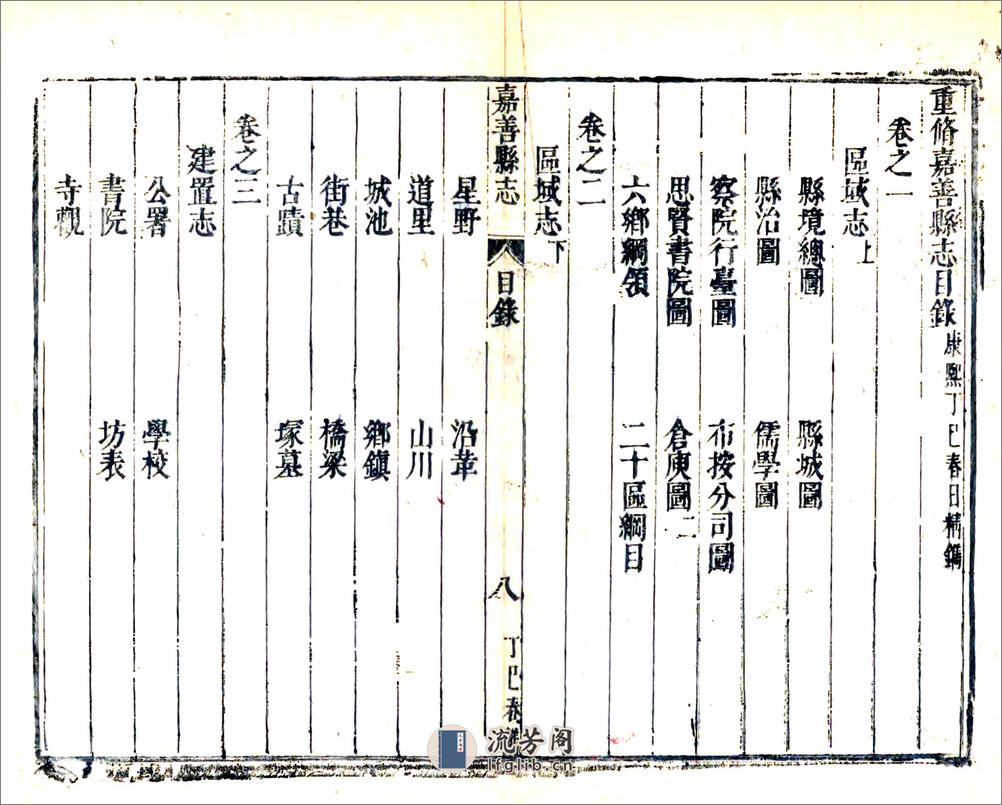 重脩嘉善縣志目錄 康熙丁巳春日精鐫
卷之一
區域志上
縣境總圖 縣城圖
縣治圖 儒學圖
察院行臺圖 布按分司圖
思賢書院圖 倉庾圖二
六鄉綱領 二十區綱目
卷之二
區域志下
嘉善縣志 目錄 八 丁巳春
星野 沿革
道里 山川
城池 鄉鎮
街巷 橋梁
古蹟 塚墓
卷之三
建置志
公署 學校
書院 坊表
寺觀
流芳阁
lfglib.cn